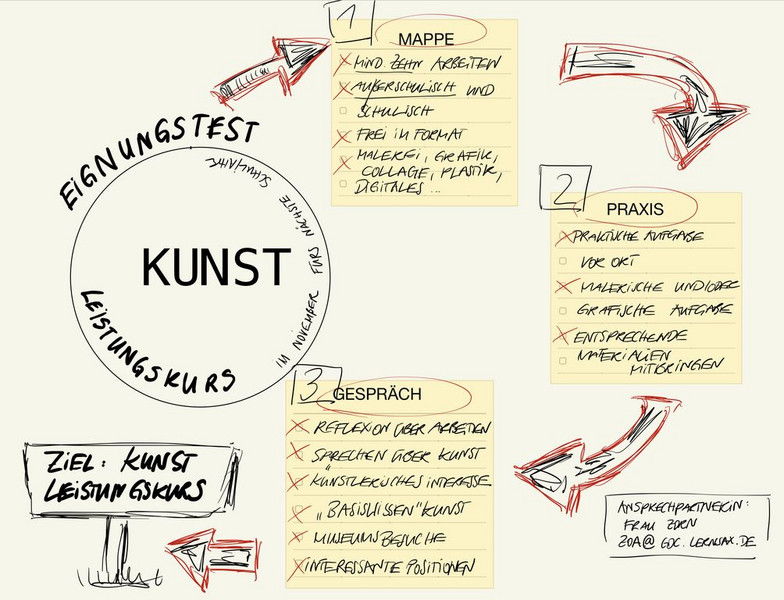 EIGNUNGSTEST
KUNST
LEISTUNGSKURS
IM NOVEMBER FÜRS NÄCHSTE SCHULJAHR
1
MAPPE
MIND. ZEHN ARBEITEN
AUẞERSCHULISCH UND
SCHULISCH
FREI IM FORMAT
MALEREI, GRAFIK,
COLLAGE, PLASTIK,
DIGITALES ...
2
PRAXIS
PRAKTISCHE AUFGABE
VOR ORT
MALERISCHE UND/ODER
GRAFISCHE AUFGABE
ENTSPRECHENDE
MATERIALIEN
MITBRINGEN
3
GESPRÄCH
REFLEXION ÜBER ARBEITEN
SPRECHEN ÜBER KUNST
KÜNSTLERISCHES INTERESSE
„BASISWISSEN" KUNST
MUSEUMSBESUCHE
INTERESSANTE POSITIONEN
ZIEL: KUNST
LEISTUNGSKURS
ANSPRECHPARTNERIN:
FRAU ZORN
ZOR@ GDC. LERNSAX.DE